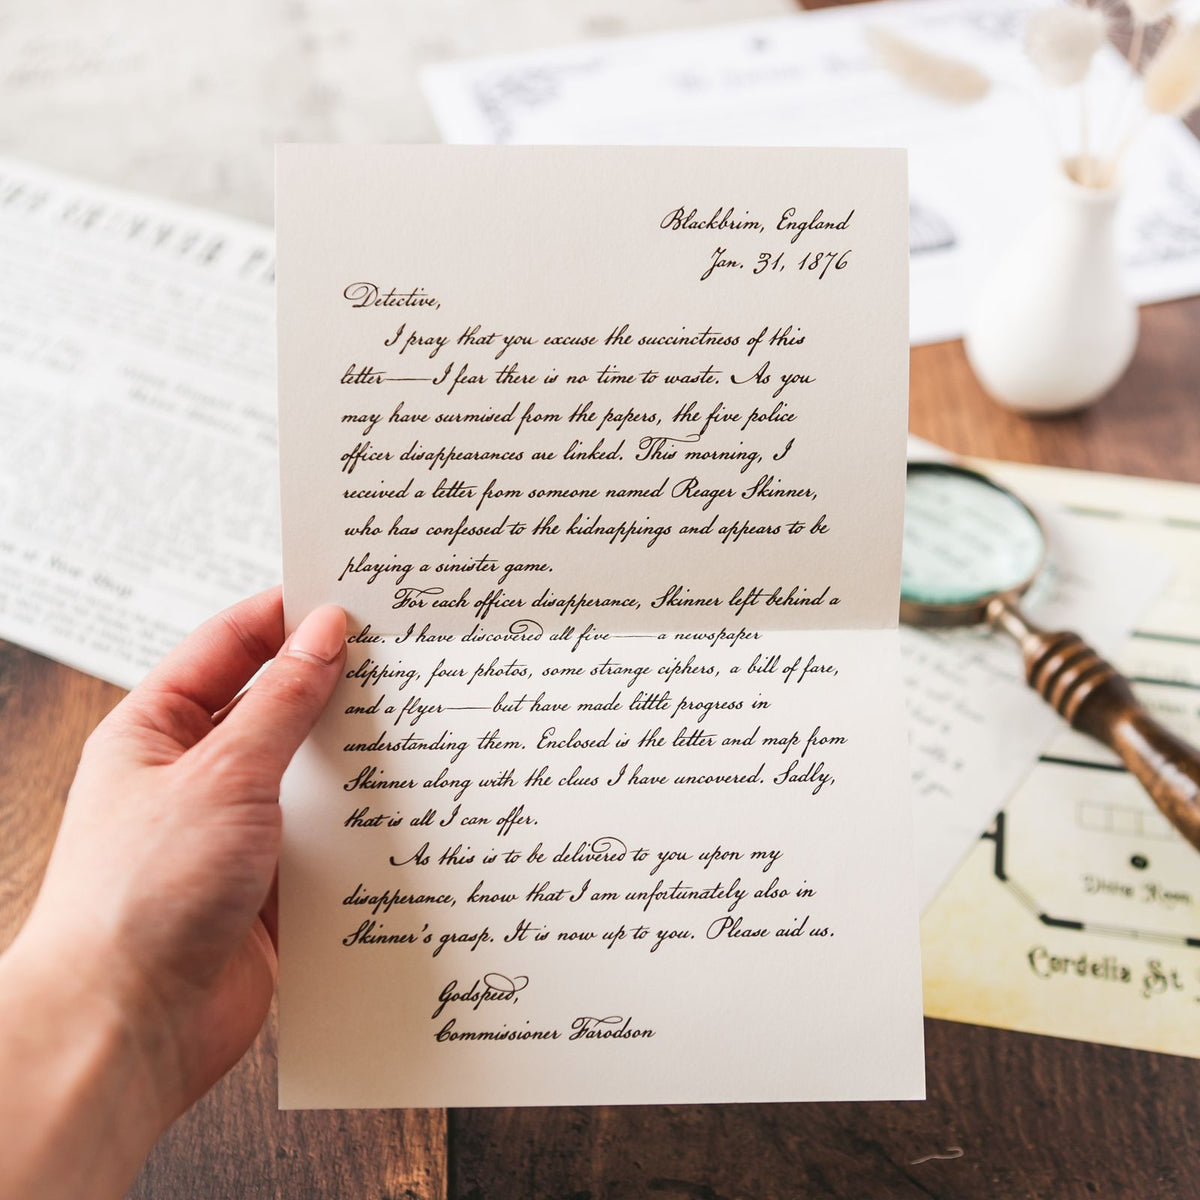 Blackbrim, England
Jan. 31, 1876
Detective,
I pray that you excuse the succinctness of this
letter——I fear there is no time to waste. As you
may have surmised from the papers, the five police
officer disappearances are linked. This morning, I
received a letter from someone named Reager Skinner,
who has confessed to the kidnappings and appears to be
playing a sinister game.
For each officer disapperance, Skinner left behind a
clue. I have discovered all five——a newspaper
clipping, four photos, some strange ciphers, a bill of fare,
and a flyer——but have made little progress in
understanding them. Enclosed is the letter and map from
Skinner along with the clues I have uncovered. Sadly,
that is all I can offer.
As this is to be delivered to you upon my
disapperance, know that I am unfortunately also in
Skinner's grasp. It is now up to you. Please aid us.
Godspeed,
Commissioner Farodson
Cordelia St